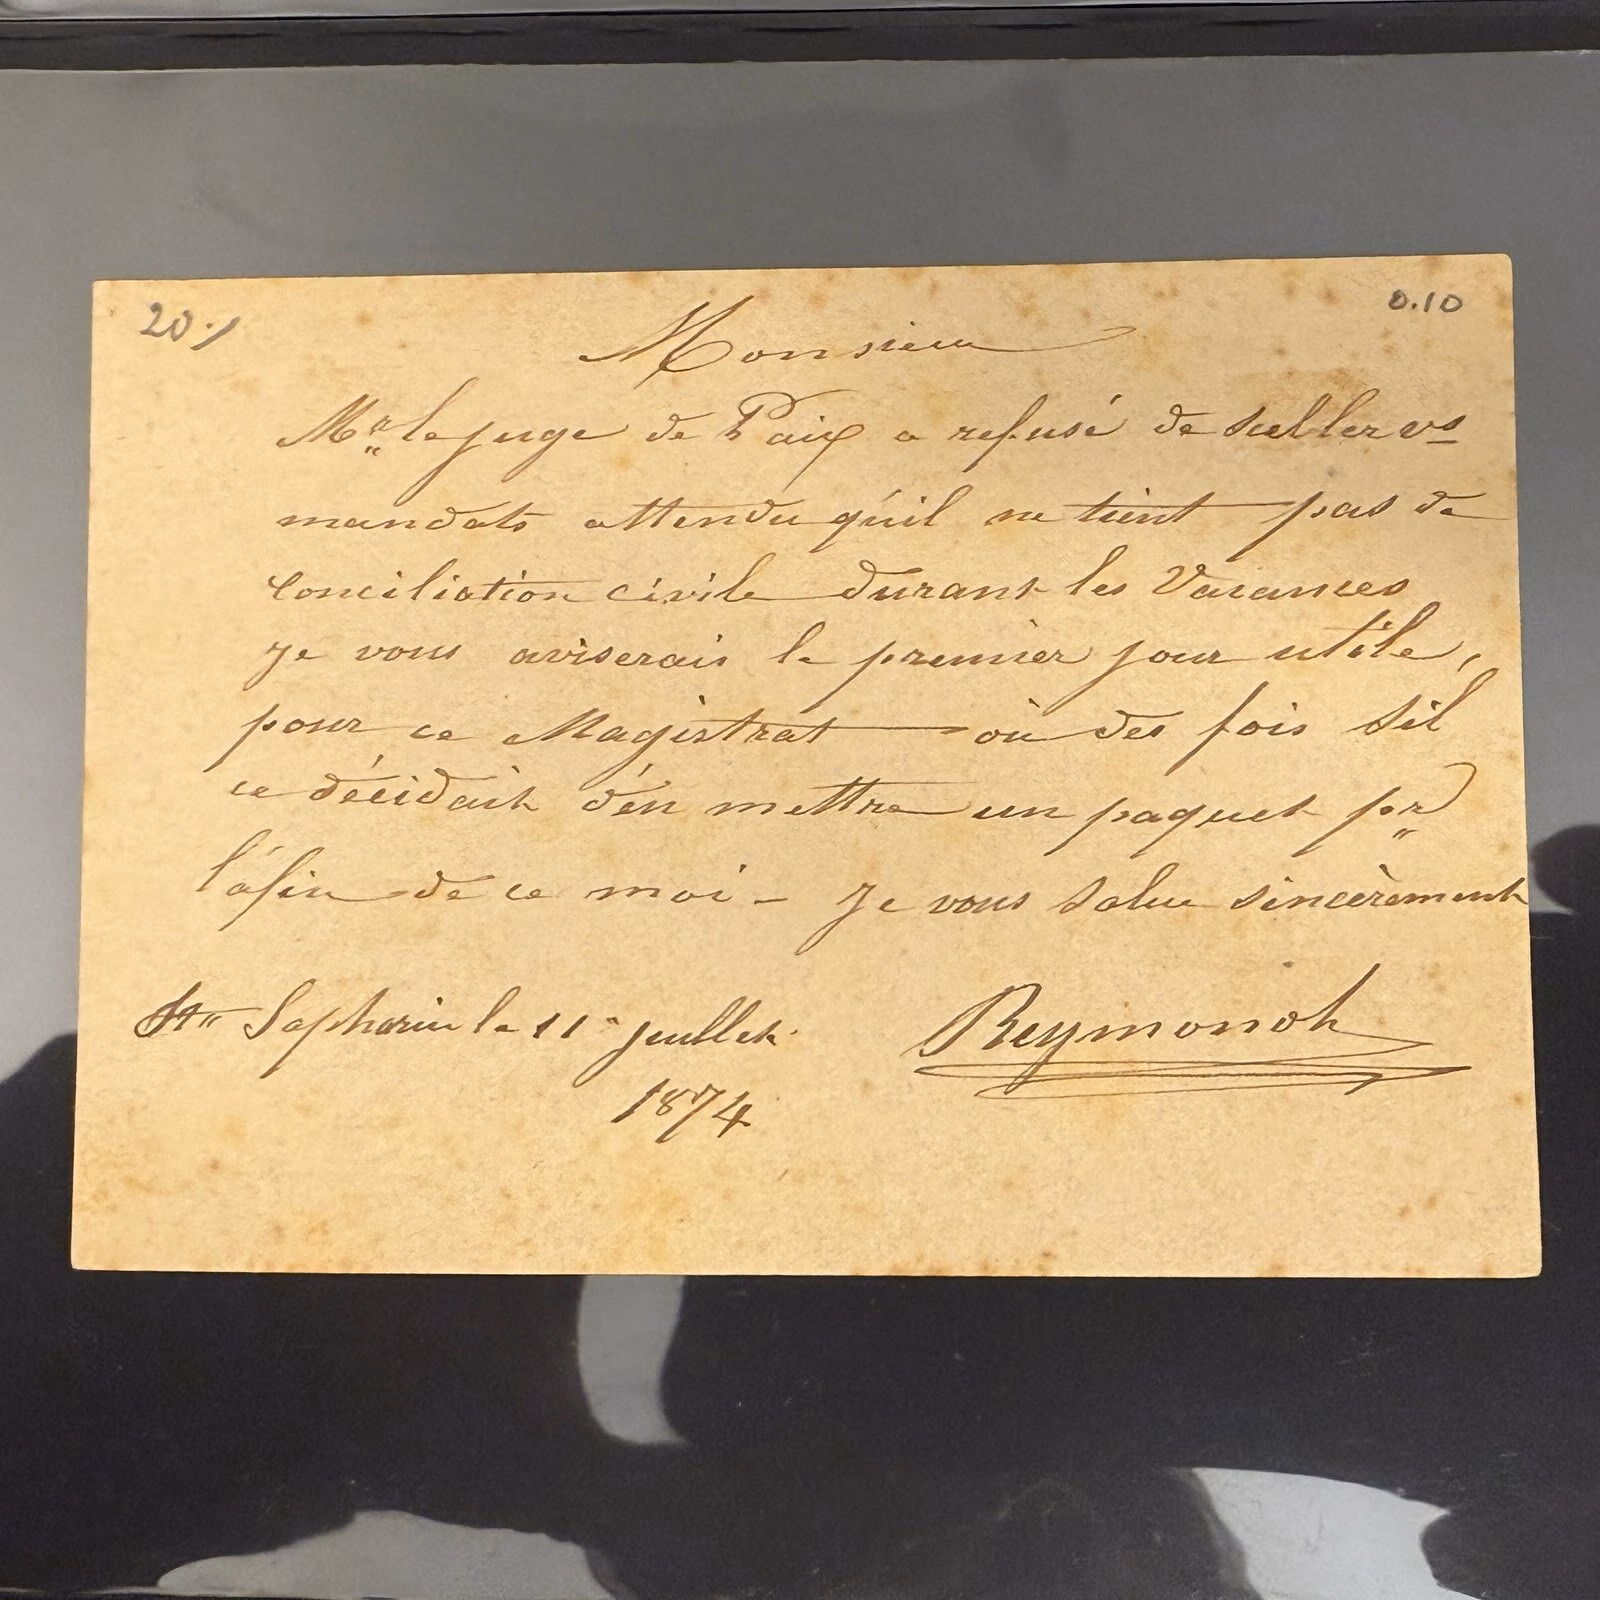 20.
0.10
Monsieur
Mr le juge de Paix a refusé de sceller vs
mandats attendu qu'il ne tient pas de
conciliation civile durant les Vacances
Je vous aviserais le premier jour utile,
pour ce Magistrat où des fois s'il
ce décidait d'en mettre un paquet pr
l'afin de ce moi - Je vous salue sincèrement
St Saphorin le 11 juillet
1874
Reymond